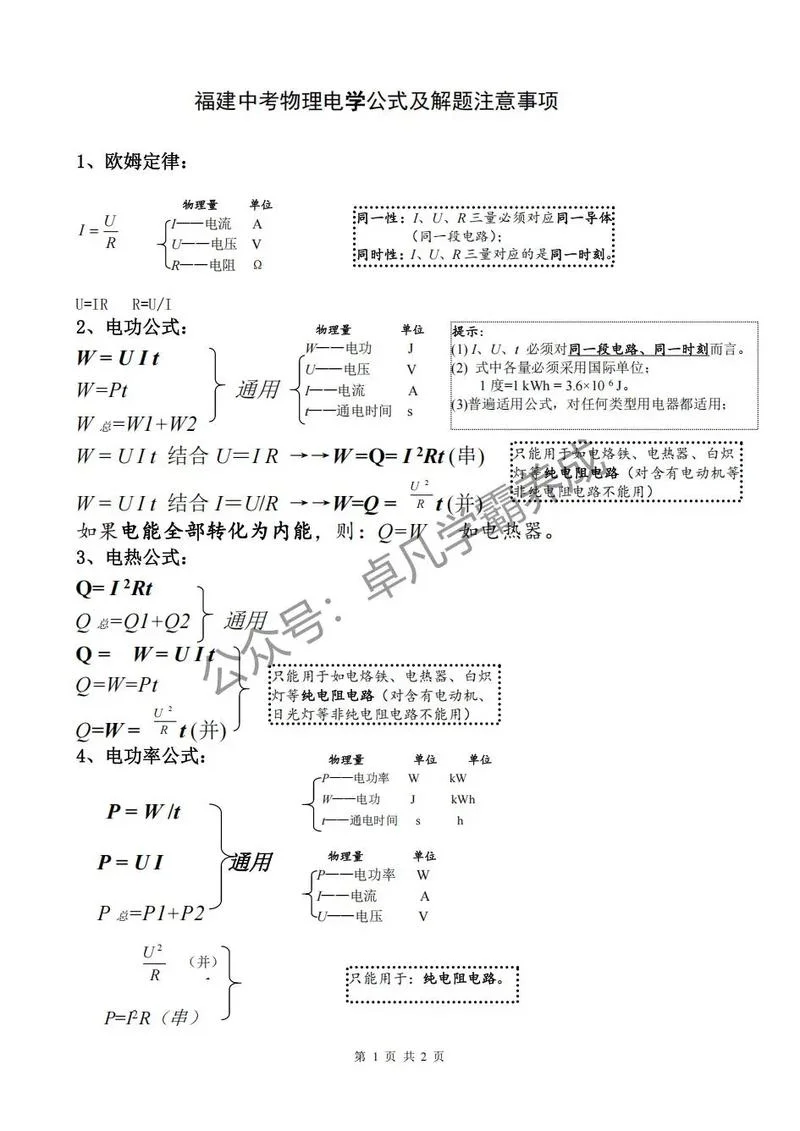 福建中考物理电学公式及解题注意事项
1、欧姆定律：
I = U/R
物理量 单位
I——电流 A
U——电压 V
R——电阻 Ω
同一性：I、U、R三量必须对应同一导体
（同一段电路）；
同时性：I、U、R三量对应的是同一时刻。
U=IR R=U/I
2、电功公式：
W = U I t
W=Pt
W 总=W1+W2
通用
物理量 单位
W——电功 J
U——电压 V
I——电流 A
t——通电时间 s
提示：
(1) I、U、t 必须对同一段电路、同一时刻而言。
(2) 式中各量必须采用国际单位；
1度=1 kWh = 3.6×10⁶J。
(3)普遍适用公式，对任何类型用电器都适用；
W = U I t 结合 U＝I R →→W =Q= I²Rt (串)
W = U I t 结合 I＝U/R →→W=Q = U²/R t (并)
只能用于如电烙铁、电热器、白炽
灯等纯电阻电路（对含有电动机等
非纯电阻电路不能用）
如果电能全部转化为内能，则：Q=W 如电热器。
3、电热公式：
Q= I²Rt
Q 总=Q1+Q2
通用
Q = W = U I t
Q=W=Pt
Q=W = U²/R t (并)
只能用于如电烙铁、电热器、白炽
灯等纯电阻电路（对含有电动机、
日光灯等非纯电阻电路不能用）
4、电功率公式：
P = W /t
P = U I
P 总=P1+P2
通用
物理量 单位 单位
P——电功率 W kW
W——电功 J kWh
t——通电时间 s h
物理量 单位
P——电功率 W
I——电流 A
U——电压 V
U²/R （并）
P=I²R（串）
只能用于：纯电阻电路。
公众号：卓凡学霸养成
第 1 页 共 2 页